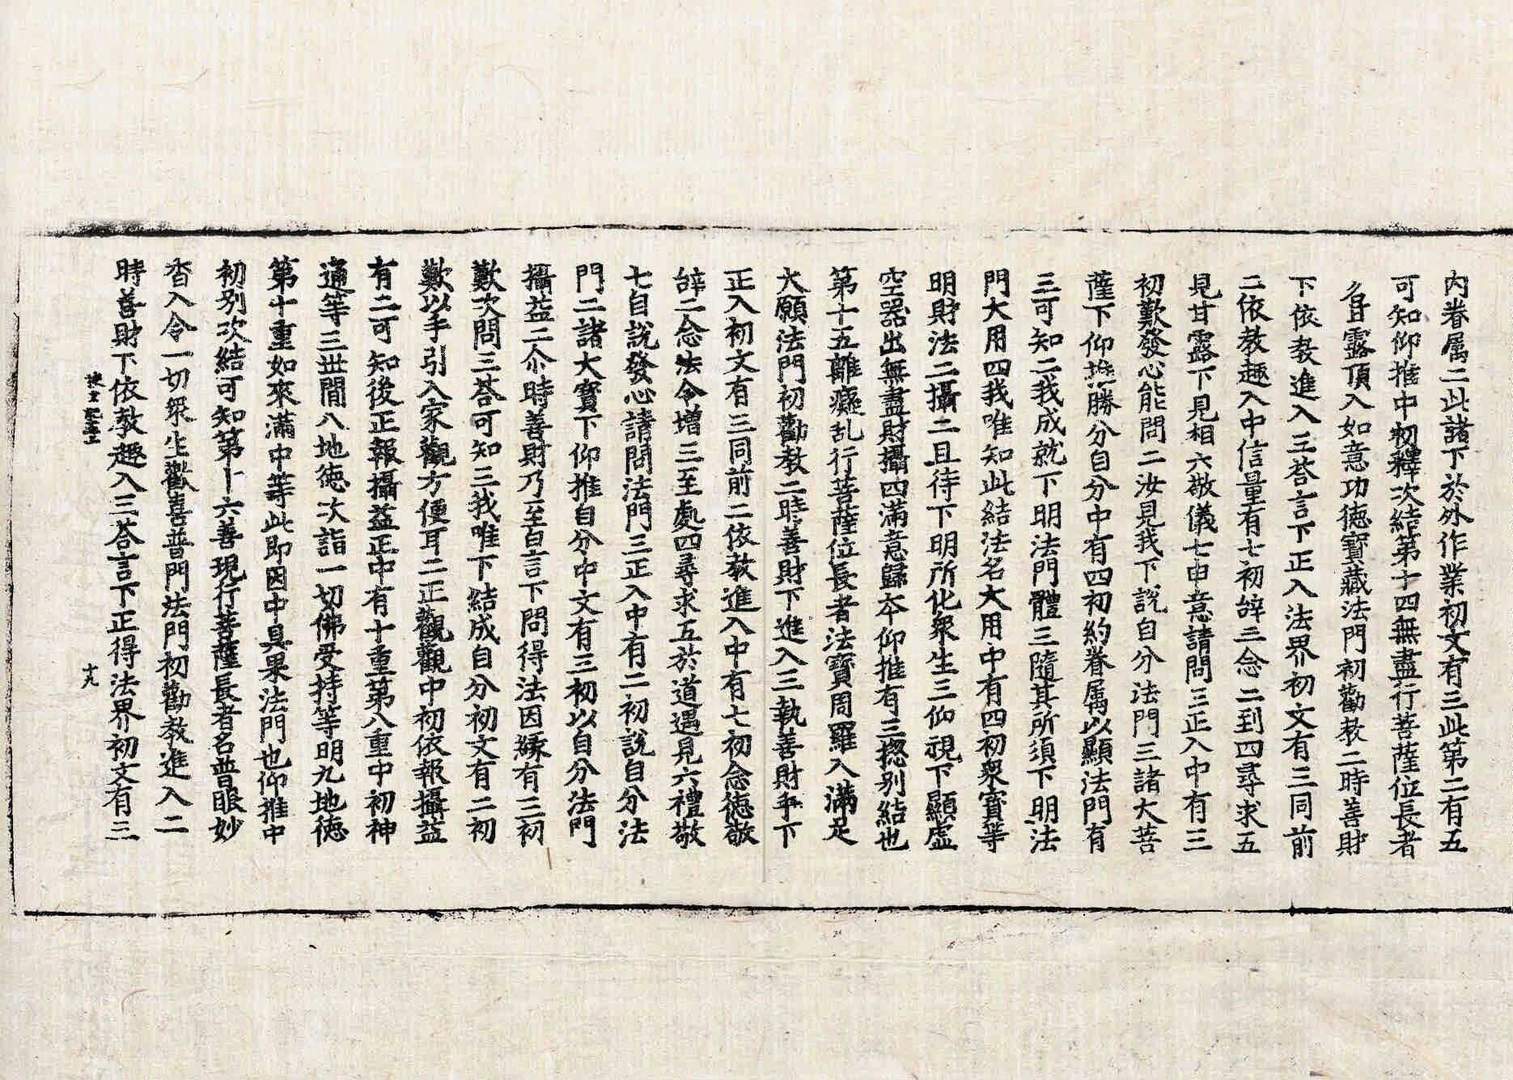 内眷属二此諸下於外作業初文有三此第二有五
可知仰推中初釋次結第十四無盡行菩薩位長者
名甘露頂入如意功徳寶藏法門初勸教二時善財
下依教進入三荅言下正入法界初文有三同前
二依教趣入中信量有七初辞三念二到四尋求五
見甘露下見相六敬儀七申意請問三正入中有三
初歎發心能問二汝見我下說自分法門三諸大菩
薩下仰推勝分自分中有四初約眷属以顯法門有
三可知二我成就下明法門體三隨其所須下明法
門大用四我唯知此結法名大用中有四初衆寶等
明財法二攝二且待下明所化衆生三仰視下顯虛
空器出無盡財攝四滿意歸本仰推有三揔别結也
第十五離癡乱行菩薩位長者法寶周羅入滿足
大願法門初勸教二時善財下進入三執善財手下
正入初文有三同前二依教進入中有七初念徳敬
辞二念法令增三至處四尋求五於道遇見六禮敬
七自說發心請問法門三正入中有二初說自分法
門二諸大寶下仰推自分中文有三初以自分法門
攝益二尒時善財乃至白言下問得法因縁有三初
歎次問三荅可知三我唯下結成自分初文有二初
歎以手引入家觀方便耳二正觀觀中初依報攝益
有二可知後正報攝益正中有十重第八重中初神
通等三丗間八地徳次詣一切佛受持等明九地徳
第十重如來滿中等此即因中具果法門也仰推中
初别次結可知第十六善現行菩薩長者名普眼妙
香入令一切衆生歡喜普門法門初勸教進入二
時善財下依教趣入三荅言下正得法界初文有三
十九